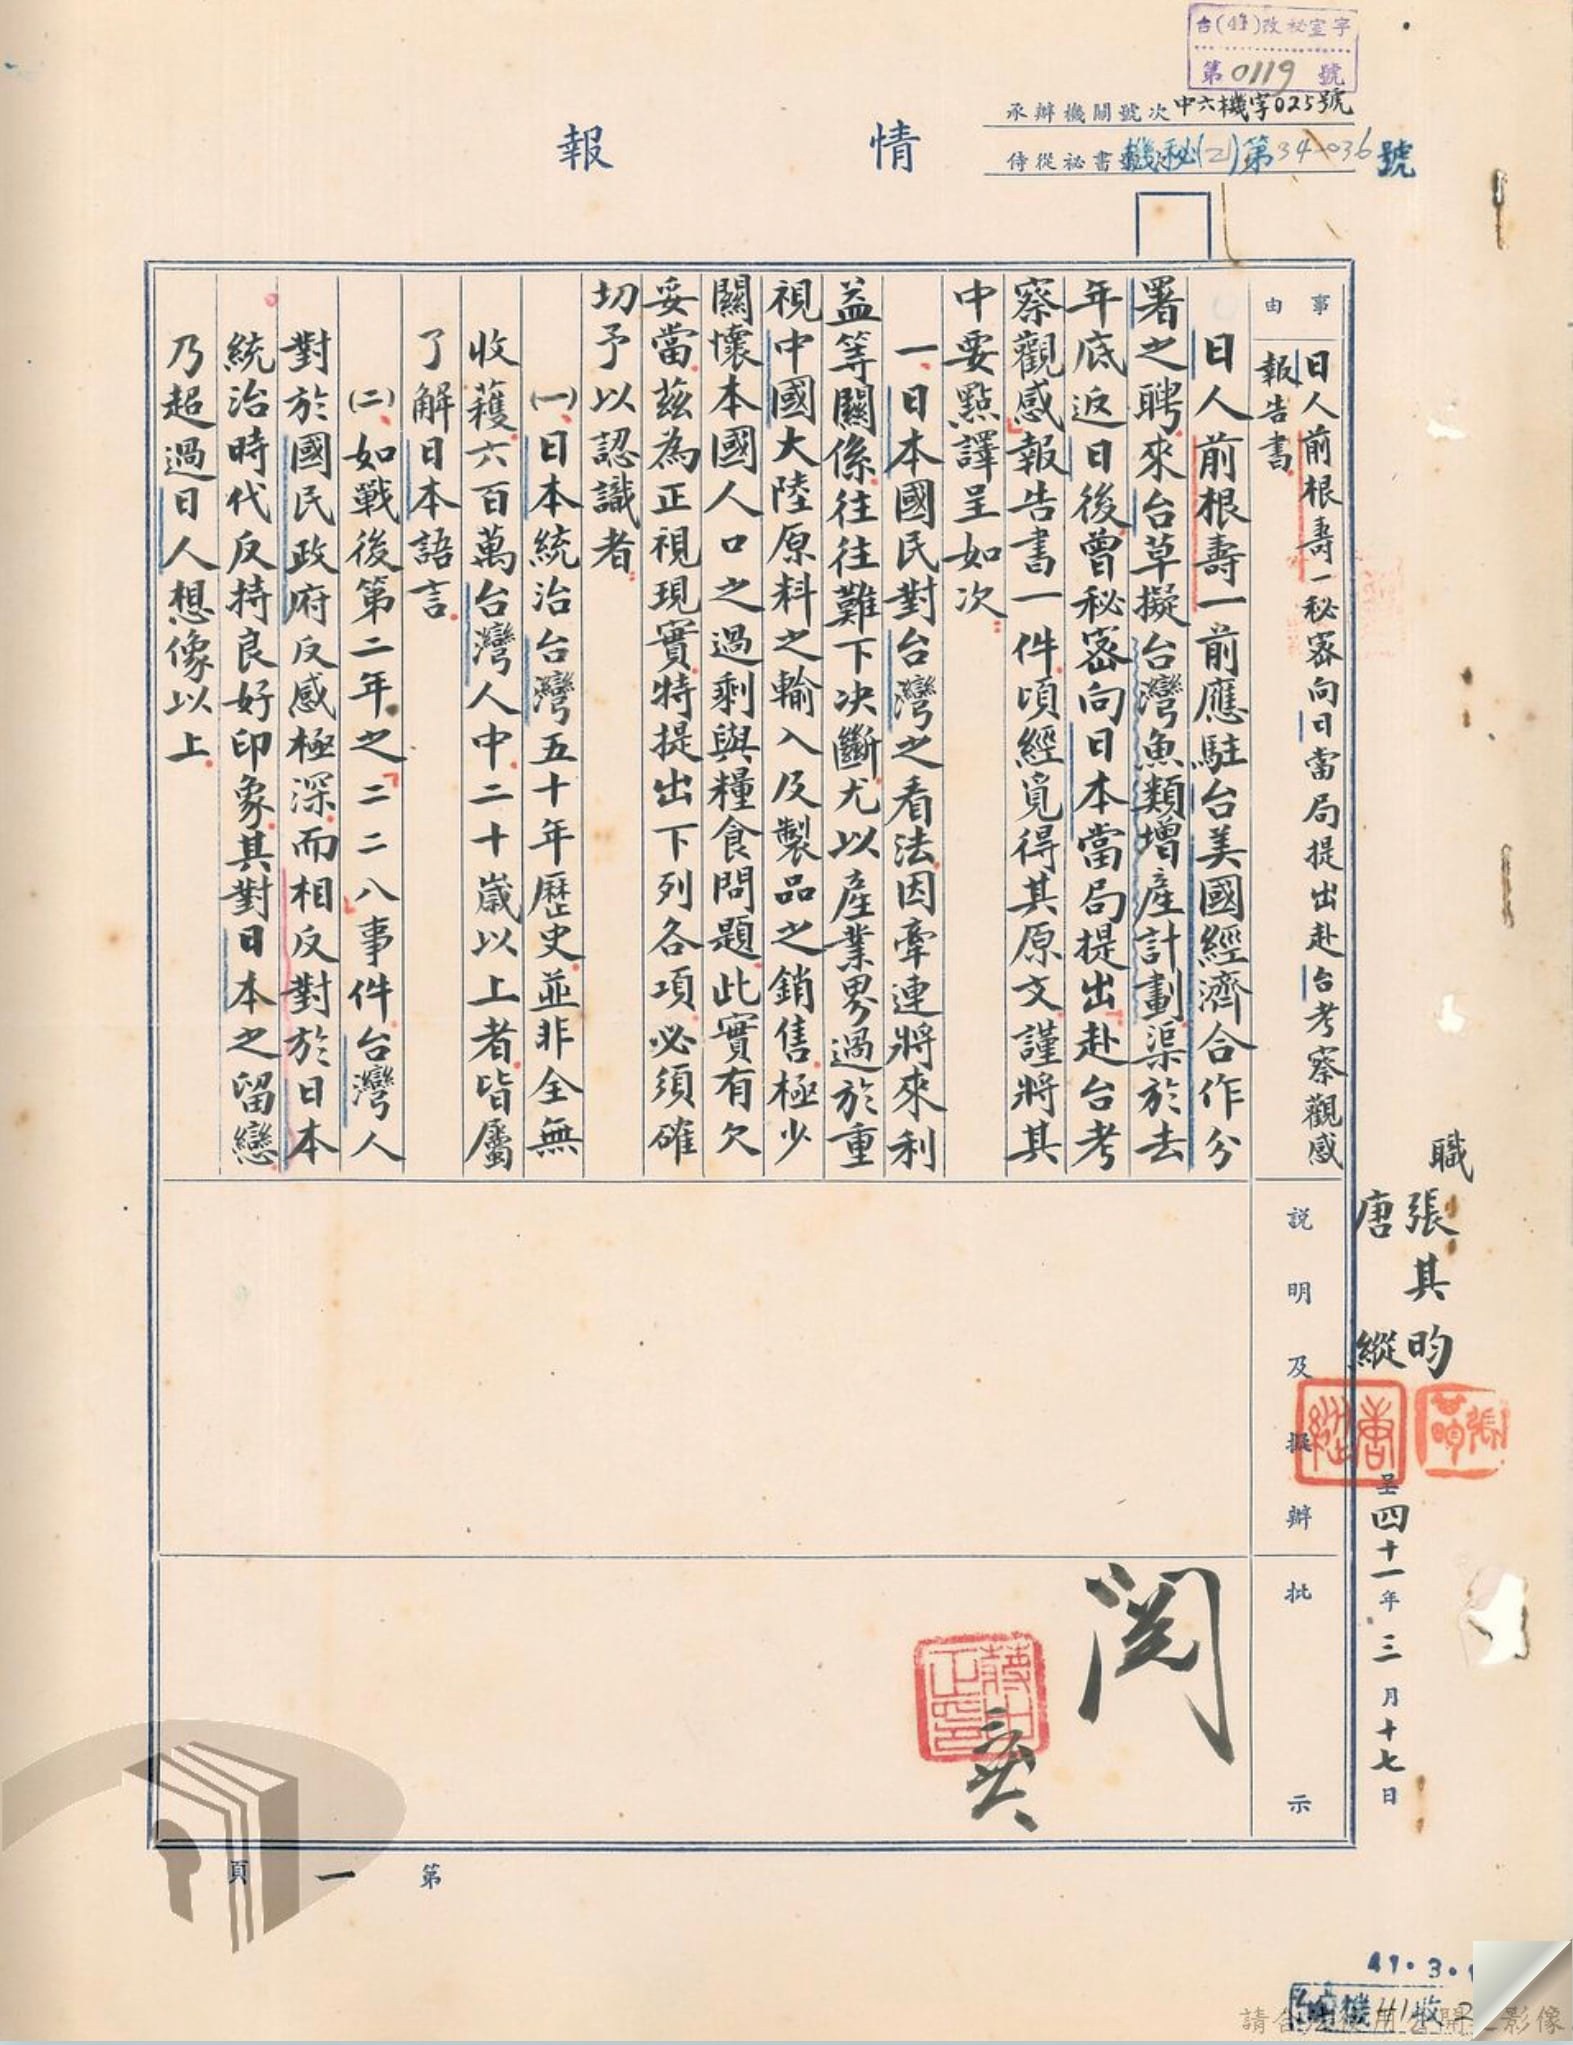 台(41)改秘室字
第0119號
承辦機關號次中六機字025號
侍從祕書 機秘(乙)第34-036號
情報
事由
日人前根壽一秘密向日當局提出赴台考察觀感
報告書
日人前根壽一前應駐台美國經濟合作分
署之聘來台草擬台灣魚類增產計劃渠於去
年底返日後曾秘密向日本當局提出赴台考
察觀感報告書一件頃經覓得其原文謹將其
中要點譯呈如次:
一、日本國民對台灣之看法因牽連將來利
益等關係往往難下決斷尤以產業界過於重
視中國大陸原料之輸入及製品之銷售極少
關懷本國人口之過剩與糧食問題此實有欠
妥當茲為正視現實特提出下列各項必須確
切予以認識者:
(一)、日本統治台灣五十年歷史並非全無
收穫六百萬台灣人中二十歲以上者皆屬
了解日本語言.
(二)、如戰後第二年之「二二八」事件台灣人
對於國民政府反感極深而相反對於日本
統治時代反持良好印象其對日本之留戀
乃超過日人想像以上.
說明及擬辦
批示
閱
職張其昀
唐縱
呈四十一年三月十七日
第一頁
41.3.